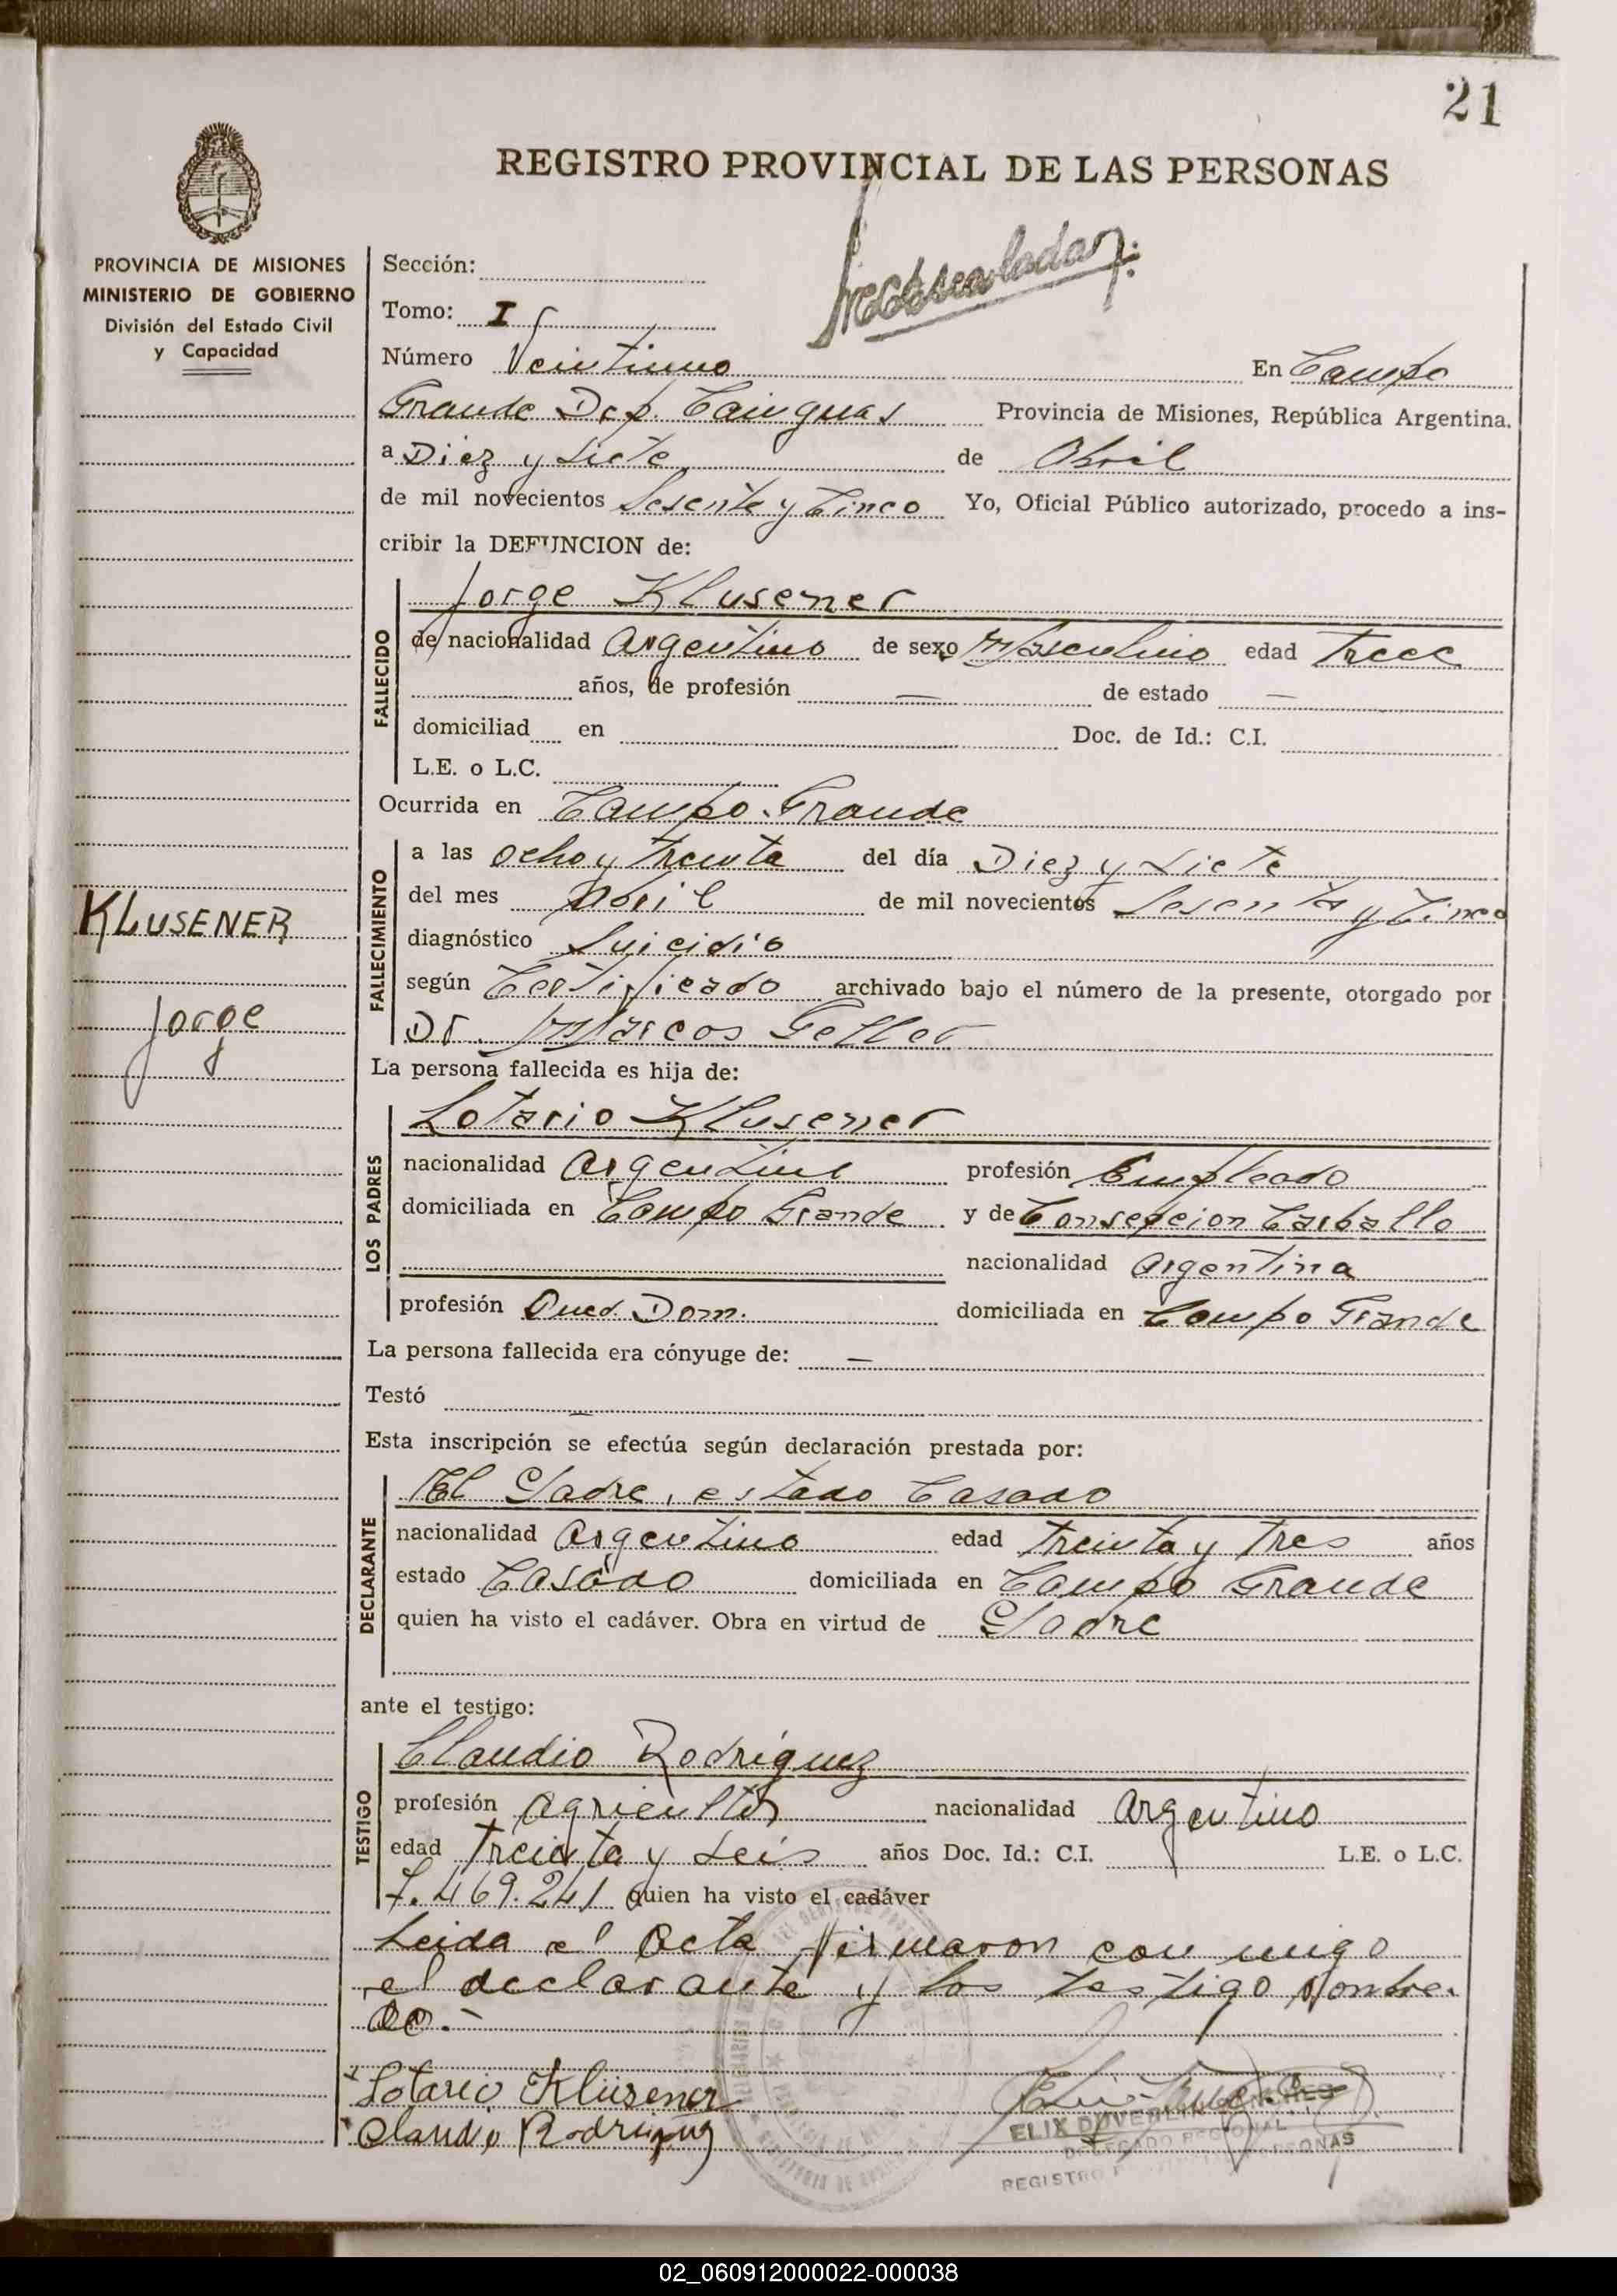 21
REGISTRO PROVINCIAL DE LAS PERSONAS
PROVINCIA DE MISIONES
MINISTERIO DE GOBIERNO
División del Estado Civil
y Capacidad
Sección:
Tomo: I
Número Veintiuno En Campo
Grande Dep. Cainguas Provincia de Misiones, República Argentina.
a Diez y Siete de Abril
de mil novecientos Sesenta y Cinco Yo, Oficial Público autorizado, procedo a ins-
cribir la DEFUNCION de:
FALLECIDO
Jorge Klusener
de nacionalidad Argentino de sexo Masculino edad Trece
años, de profesión — de estado —
domiciliad en Doc. de Id.: C.I.
L.E. o L.C.
Ocurrida en Campo Grande
FALLECIMIENTO
a las ocho y treinta del día Diez y Siete
del mes Abril de mil novecientos Sesenta y Cinco
diagnóstico Suicidio
según Certificado archivado bajo el número de la presente, otorgado por
Dr. Marcos Geller
KLUSENER
Jorge
La persona fallecida es hija de:
LOS PADRES
Lotario Klusener
nacionalidad Argentino profesión Empleado
domiciliada en Campo Grande y de Consepcion Carballo
nacionalidad Argentina
profesión Qued. Dom. domiciliada en Campo Grande
La persona fallecida era cónyuge de: —
Testó —
Esta inscripción se efectúa según declaración prestada por:
DECLARANTE
El Padre, estado Casado
nacionalidad Argentino edad Treinta y Tres años
estado Casado domiciliada en Campo Grande
quien ha visto el cadáver. Obra en virtud de Padre
ante el testigo:
TESTIGO
Claudio Rodriguez
profesión Agricultor nacionalidad Argentino
edad Treinta y Seis años Doc. Id.: C.I. L.E. o L.C.
7.469.241 quien ha visto el cadáver
Leida el Acta firmaron con migo
el declarante y los testigo Nombra-
do.-
Lotario Klüsener
Claudio Rodriguez
DELEGADO REGIONAL
REGISTRO PERSONAS
02_060912000022-000038